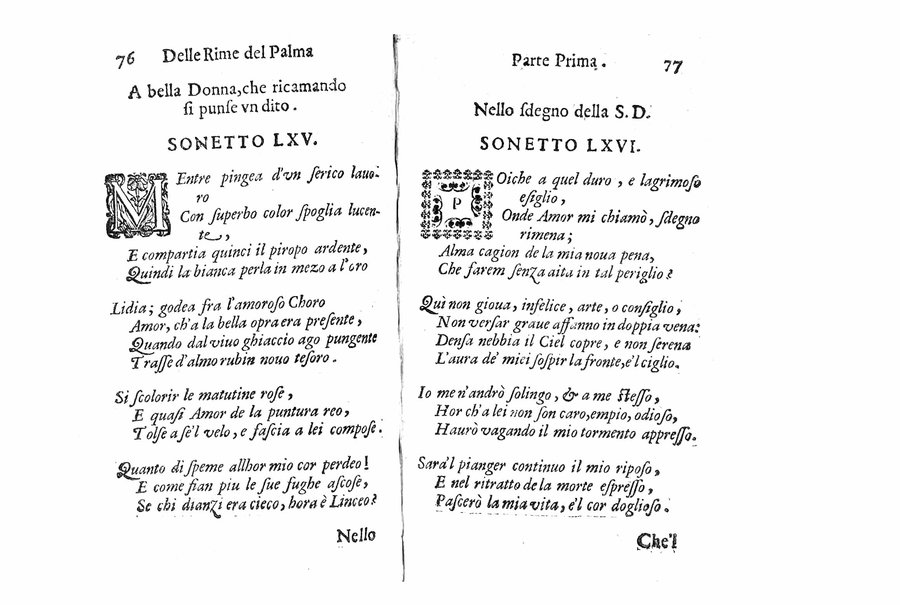 76 Delle Rime del Palma
A bella Donna, che ricamando
ſi punſe vn dito.
SONETTO LXV.
MEntre pingea d'vn ſerico lauo-
ro
Con ſuperbo color ſpoglia lucen-
te,
E compartia quinci il piropo ardente,
Quindi la bianca perla in mezo a l'oro
Lidia; godea fra l'amoroſo Choro
Amor, ch'a la bella opra era preſente,
Quando dal viuo ghiaccio ago pungente
Traſſe d'almo rubin nouo teſoro.
Si ſcolorir le matutine roſe,
E quaſi Amor de la puntura reo,
Tolſe a ſè'l velo, e faſcia a lei compoſe.
Quanto di ſpeme allhor mio cor perdeo!
E come fian piu le ſue fughe aſcoſe,
Se chi dianzi era cieco, hora è Linceo?
Nello
Parte Prima. 77
Nello ſdegno della S. D.
SONETTO LXVI.
POiche a quel duro, e lagrimoſo
eſiglio,
Onde Amor mi chiamò, ſdegno
rimena;
Alma cagion de la mia noua pena,
Che farem ſenza aita in tal periglio?
Quì non gioua, infelice, arte, o conſiglio,
Non verſar graue affanno in doppia vena:
Denſa nebbia il Ciel copre, e non ſerena
L'aura de' miei ſoſpir la fronte, e'l ciglio.
Io me n'andrò ſolingo, & a me ſteſſo,
Hor ch'a lei non ſon caro, empio, odioſo,
Haurò vagando il mio tormento appreſſo.
Sara'l pianger continuo il mio ripoſo,
E nel ritratto de la morte eſpreſſo,
Paſcerò la mia vita, e'l cor doglioſo.
Che'l